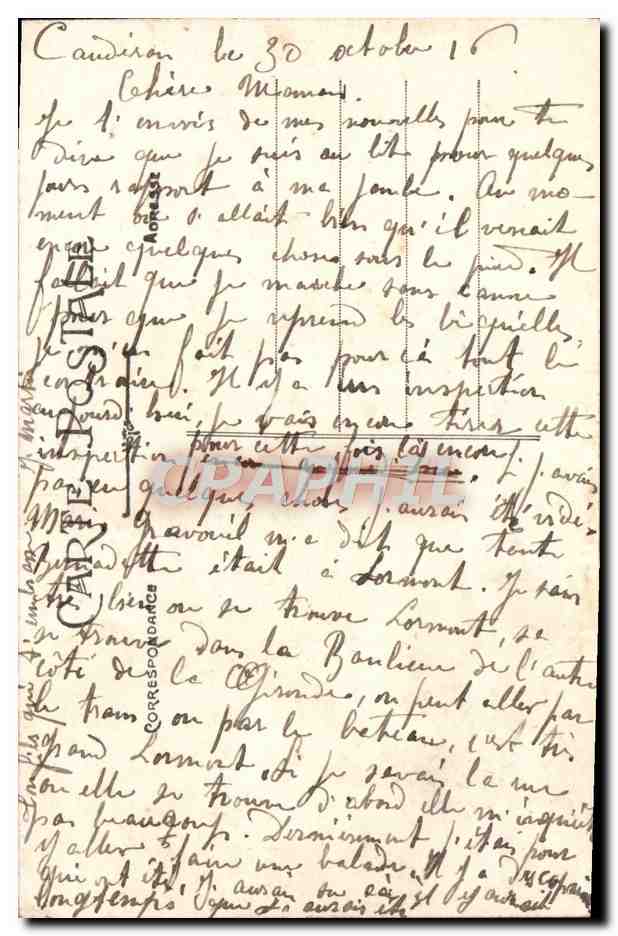 Caudéran le 30 octobre 16
Chère Maman.
Je t'envois de mes nouvelles pour te
dire que je suis au lit pour quelques
jours rapport à ma jambe. Au mo-
ment où s'allait bien qu'il venait
encore quelques chose sous le pied. Il
fallait que je marche sans canne
pour que je reprend les béquilles
je m'en fait pas pour ça tout le
contraire. Il y a une inspection
aujourd'hui, je vais encore tirer cette
inspection pour cette fois là encore. J'avais
pas eu quelques choses j'aurais été vidé.
Mme m'a dit que tante
Bernadette était à Lormont. Je sais
très bien où se trouve Lormont, se
se trouve dans la Banlieue de l'autre
côté de la Gironde, on peut aller par
le tram ou par le bateau, c'est très
grand Lormont, si je savais la rue
où elle se trouve d'abord elle m'inquiète
pas beaucoup. Dernièrement j'étais pour
y aller faire une balade. Il y a des copains
qui ont été j'aurai su ça il y aurait
longtemps que j'aurais été
Ton fils qui t'embrasse
CARTE POSTALE
CORRESPONDANCE
ADRESSE
CPAPHIL